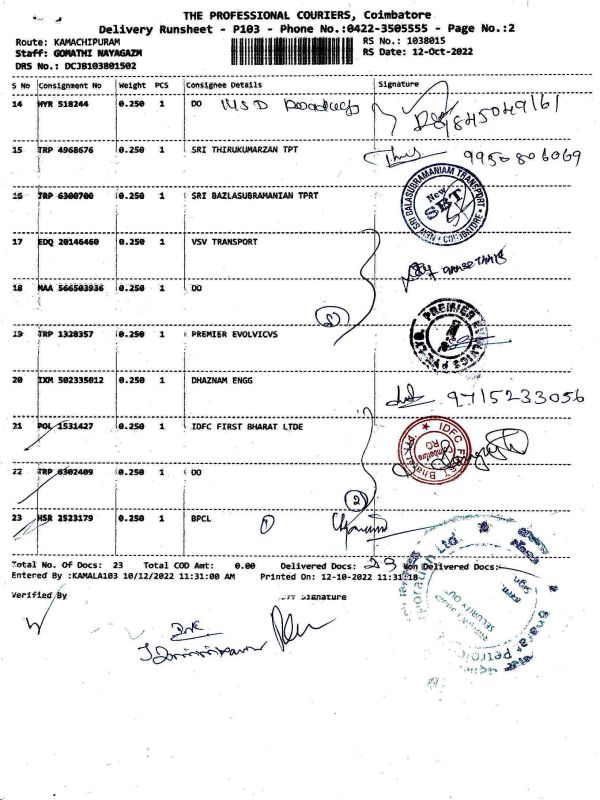 THE PROFESSIONAL COURIERS, Coimbatore
Delivery Runsheet - P103 - Phone No.:0422-3505555 - Page No.:2
Route: KAMACHIPURAM RS No.: 1038015
Staff: GOMATHI NAYAGAZM RS Date: 12-Oct-2022
DRS No.: DCJB103801502
S No Consignment No Weight PCS Consignee Details Signature
14 HYR 518244 0.250 1 DO
15 TRP 4968676 0.250 1 SRI THIRUKUMARZAN TPT 9950806069
16 TRP 6300700 0.250 1 SRI BAZLASUBRAMANIAN TPRT
SRI BALASUBRAMANIAM TRANSPORT
New
SBT
COIMBATORE
17 EDQ 20146460 0.250 1 VSV TRANSPORT
18 MAA 566503936 0.250 1 DO
19 TRP 1328357 0.250 1 PREMIER EVOLVICVS
20 IXM 502335012 0.250 1 DHAZNAM ENGG 9715233056
21 POL 1531427 0.250 1 IDFC FIRST BHARAT LTDE
IDFC FIRST Bharat
Coimbatore
RO
22 TRP 6302409 0.250 1 DO
2
23 HSR 2523179 0.250 1 BPCL 1
Total No. Of Docs: 23 Total COD Amt: 0.00 Delivered Docs: 23 Non Delivered Docs:
Entered By :KAMALA103 10/12/2022 11:31:00 AM Printed On: 12-10-2022 11:31:18
Verified By Signature